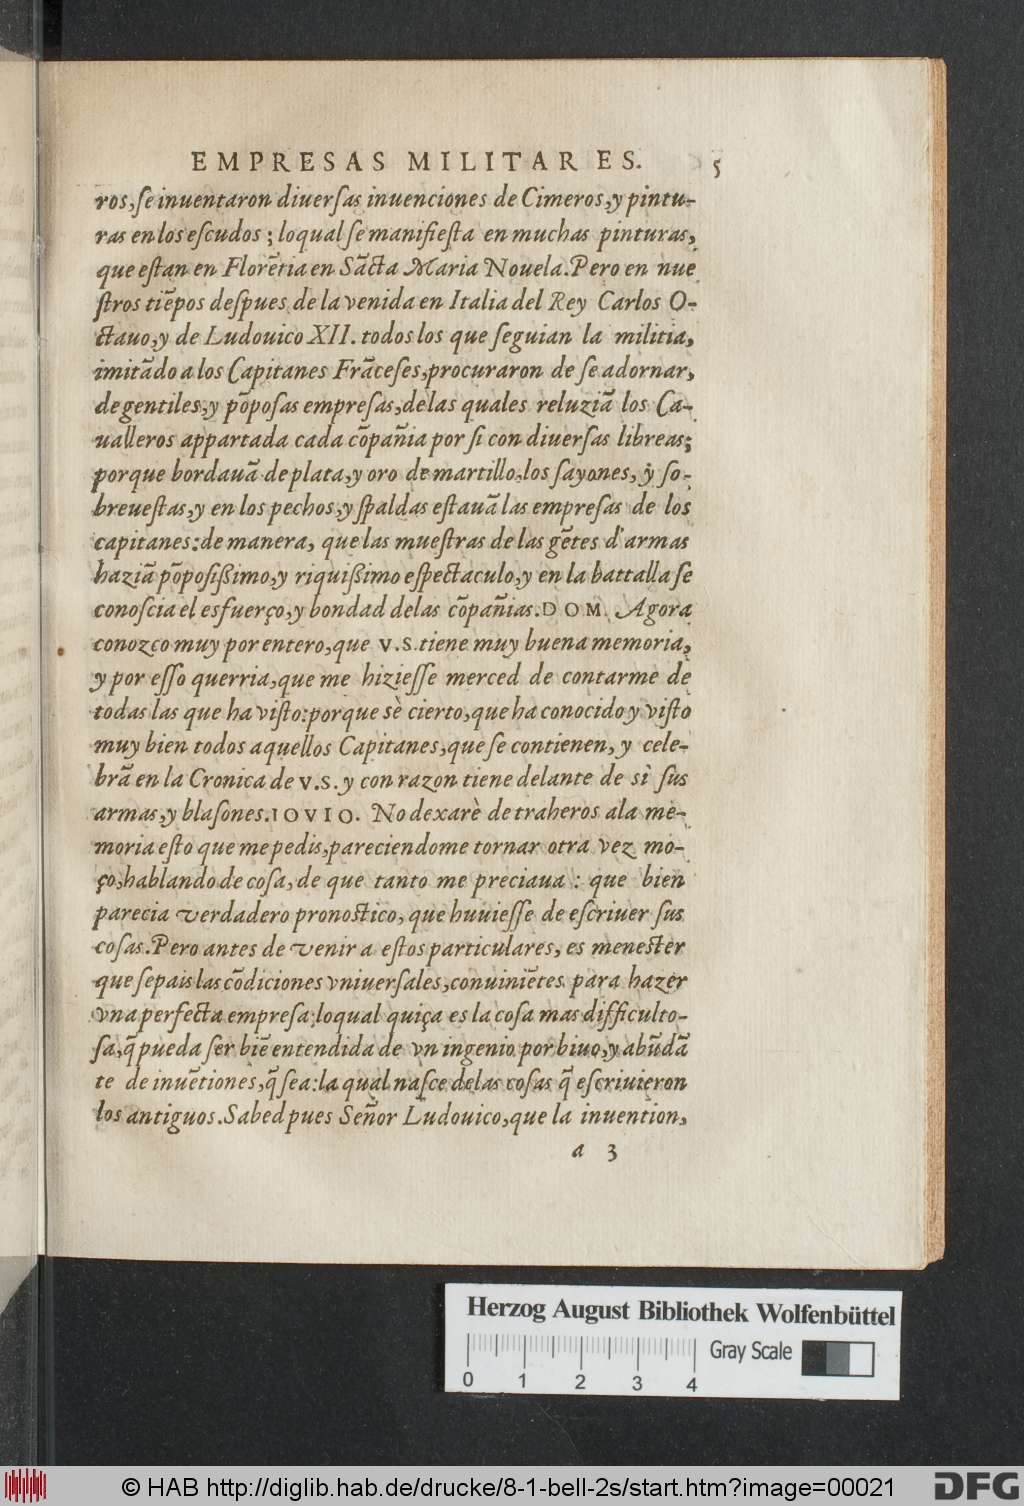 EMPRESAS MILITARES. 5
ros, ſe inuentaron diuerſas inuenciones de Cimeros, y pintu-
ras en los eſcudos; loqual ſe manifieſta en muchas pinturas,
que eſtan en Florẽtia en Sãcta Maria Nouela. Pero en nue
ſtros tiẽpos deſpues de la venida en Italia del Rey Carlos O-
ctauo, y de Ludouico XII. todos los que ſeguian la militia,
imitãdo a los Capitanes Frãceſes, procuraron de ſe adornar,
de gentiles, y põpoſas empreſas, de las quales reluziã los Ca-
ualleros appartada cada cõpañia por ſi con diuerſas libreas;
porque bordauã de plata, y oro de martillo, los ſayones, ẏ ſo-
breueſtas, y en los pechos, y ſpaldas eſtauã las empreſas de los
capitanes: de manera, que las mueſtras de las gẽtes d'armas
haziã põpoſißimo, y riquißimo eſpectaculo, y en la battalla ſe
conoſcia el esfuerço, y bondad delas cõpañias. DOM. Agora
conozco muy por entero, que V.S. tiene muy buena memoria,
y por eſſo querria, que me hizieſſe merced de contarme de
todas las que ha viſto: porque sè cierto, que ha conocido y viſto
muy bien todos aquellos Capitanes, que ſe contienen, y cele-
brã en la Cronica de V.S. y con razon tiene delante de sì ſus
armas, y blaſones. IOVIO. No dexarè de traheros ala me-
moria eſto que me pedis, pareciendome tornar otra vez mo-
ço, hablando de coſa, de que tanto me preciaua: que bien
parecia verdadero pronoſtico, que huuieſſe de eſcriuer ſus
coſas. Pero antes de venir a eſtos particulares, es meneſter
que ſepais las cõdiciones vniuerſales, conuiniẽtes para hazer
vna perfecta empreſa; loqual quiça es la coſa mas difficulto-
ſa, q̃ pueda ſer biẽ entendida de vn ingenio por biuo, y abũdã
te de inuẽtiones, q̃ ſea: la qual naſce delas coſas q̃ eſcriuieron
los antiguos. Sabed pues Señor Ludouico, que la inuention,
a 3
Herzog August Bibliothek Wolfenbüttel
Gray Scale
0 1 2 3 4
© HAB http://diglib.hab.de/drucke/8-1-bell-2s/start.htm?image=00021
DFG